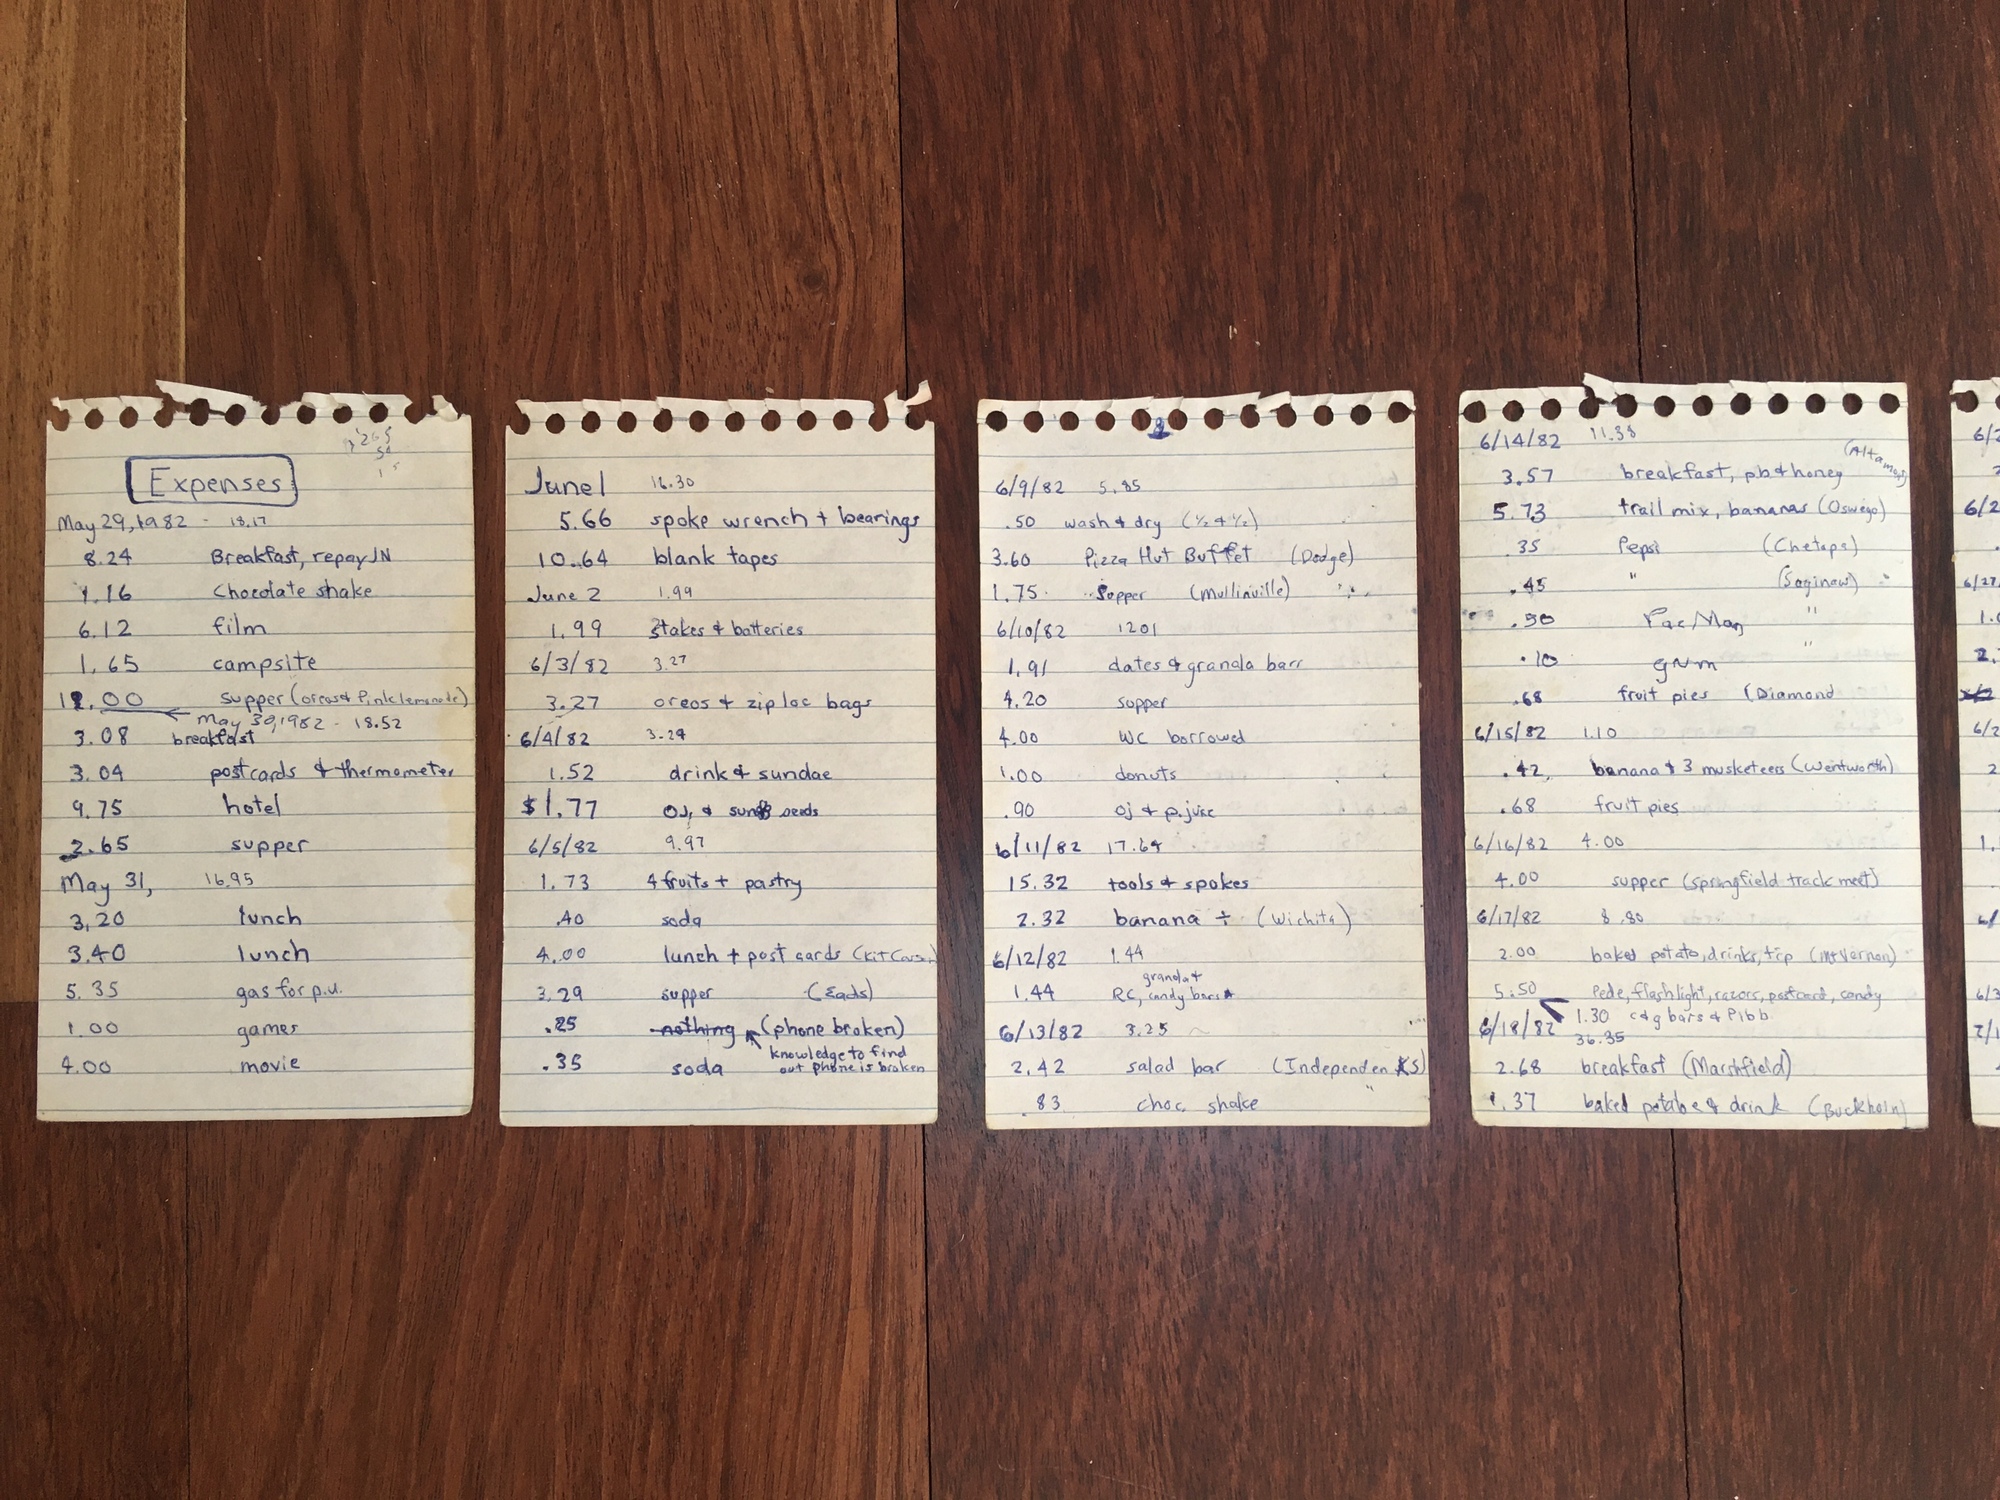 Expenses
May 29, 1982 - 18.17
8.24 Breakfast, repay JN
1.16 Chocolate shake
6.12 film
1.65 campsite
1.00 supper (oreos & Pink lemonade)
May 30, 1982 - 18.52
3.08 breakfast
3.04 postcards & thermometer
9.75 hotel
2.65 supper
May 31, 16.95
3.20 lunch
3.40 lunch
5.35 gas for p.u.
1.00 games
4.00 movie
June 1 16.30
5.66 spoke wrench + bearings
10.64 blank tapes
June 2 1.99
1.99 stakes & batteries
6/3/82 3.27
3.27 oreos & zip loc bags
6/4/82 3.29
1.52 drink & sundae
$1.77 OJ, & sunf seeds
6/5/82 9.97
1.73 4 fruits + pastry
.40 soda
4.00 lunch + post cards (Kit Carson)
3.29 supper (Eads)
.25 nothing (phone broken)
knowledge to find
out phone is broken
.35 soda
6/9/82 5.85
.50 wash & dry (½ & ½)
3.60 Pizza Hut Buffet (Dodge)
1.75 Supper (Mullinville)
6/10/82 1201
1.91 dates & granola bars
4.20 supper
4.00 WC borrowed
1.00 donuts
.90 oj & p.juice
6/11/82 17.64
15.32 tools & spokes
2.32 banana + (Wichita)
6/12/82 1.44
granola +
1.44 RC, candy bars
6/13/82 3.25
2.42 salad bar (Independen KS)
.83 choc. shake "
6/14/82 11.38
(Altamont)
3.57 breakfast, pb & honey
5.73 trail mix, bananas (Oswego)
.35 Pepsi (Chetopa)
.45 " (Saginaw)
.50 Pac Man "
.10 gum "
.68 fruit pies (Diamond
6/15/82 1.10
.42 banana & 3 musketeers (Wentworth)
.68 fruit pies
6/16/82 4.00
4.00 supper (springfield track meet)
6/17/82 8.80
2.00 baked potato, drinks, tip (Mt Vernon)
5.50 Pede, flashlight, razors, postcard, candy
1.30 c&g bars & Pibb
6/18/82 36.35
2.68 breakfast (Marshfield)
1.37 baked potatoe & drink (Buckhorn)